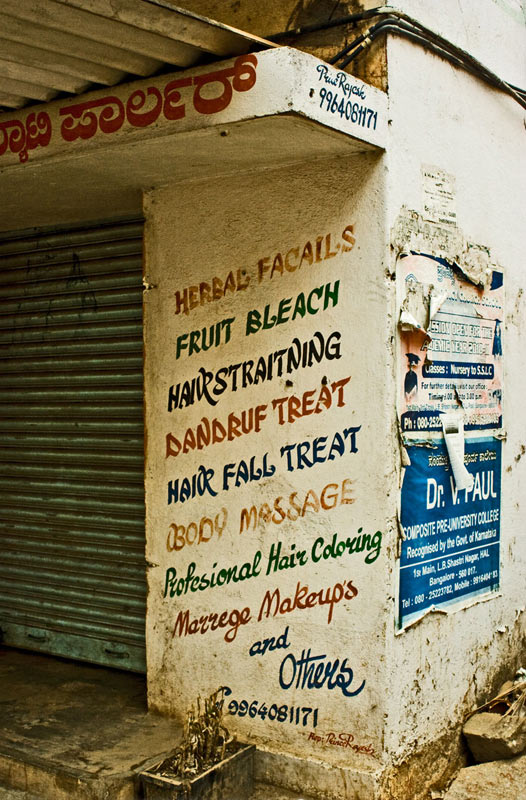 ಬ್ಯೂಟಿ ಪಾರ್ಲರ್
9964081171
HERBAL FACAILS
FRUIT BLEACH
HAIRSTRAITNING
DANDRUF TREAT
HAIR FALL TREAT
BODY MASSAGE
Profesional Hair Coloring
Marrege Makeup's
and
Others
9964081171
SESSION OPEN FOR THE
Classes : Nursery to S.S.L.C
For further details visit our office :
Dr. V. PAUL
COMPOSITE PRE-UNIVERSITY COLLEGE
Recognised by the Govt. of Karnataka
1st Main, L.B.Shastri Nagar, HAL
Bangalore - 560 017.
Tel : 080 - 25223782, Mobile : 9916404193